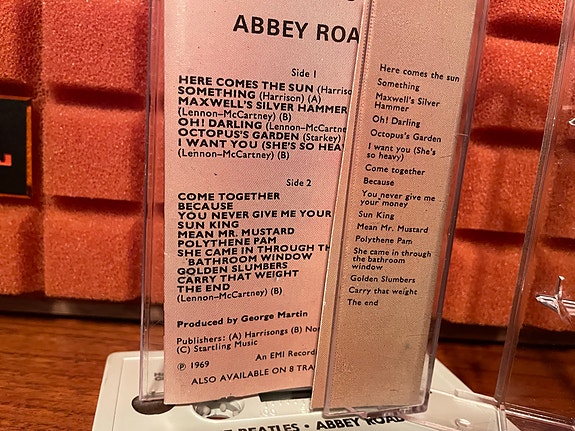 ABBEY ROA
Side 1
HERE COMES THE SUN (Harriso
SOMETHING (Harrison) (A)
MAXWELL'S SILVER HAMMER
(Lennon–McCartney) (B)
OH! DARLING (Lennon–McCartne
OCTOPUS'S GARDEN (Starkey)
I WANT YOU (SHE'S SO HEAV
(Lennon–McCartney) (B)
Side 2
COME TOGETHER
BECAUSE
YOU NEVER GIVE ME YOUR
SUN KING
MEAN MR. MUSTARD
POLYTHENE PAM
SHE CAME IN THROUGH TH
BATHROOM WINDOW
GOLDEN SLUMBERS
CARRY THAT WEIGHT
THE END
(Lennon–McCartney) (B)
Produced by George Martin
Publishers: (A) Harrisongs (B) No
(C) Startling Music
℗ 1969
An EMI Recordi
ALSO AVAILABLE ON 8 TRA
Here comes the sun
Something
Maxwell's Silver
Hammer
Oh! Darling
Octopus's Garden
I want you (She's
so heavy)
Come together
Because
You never give me
your money
Sun King
Mean Mr. Mustard
Polythene Pam
She came in through
the bathroom
window
Golden Slumbers
Carry that weight
The end
BEATLES • ABBEY ROAD